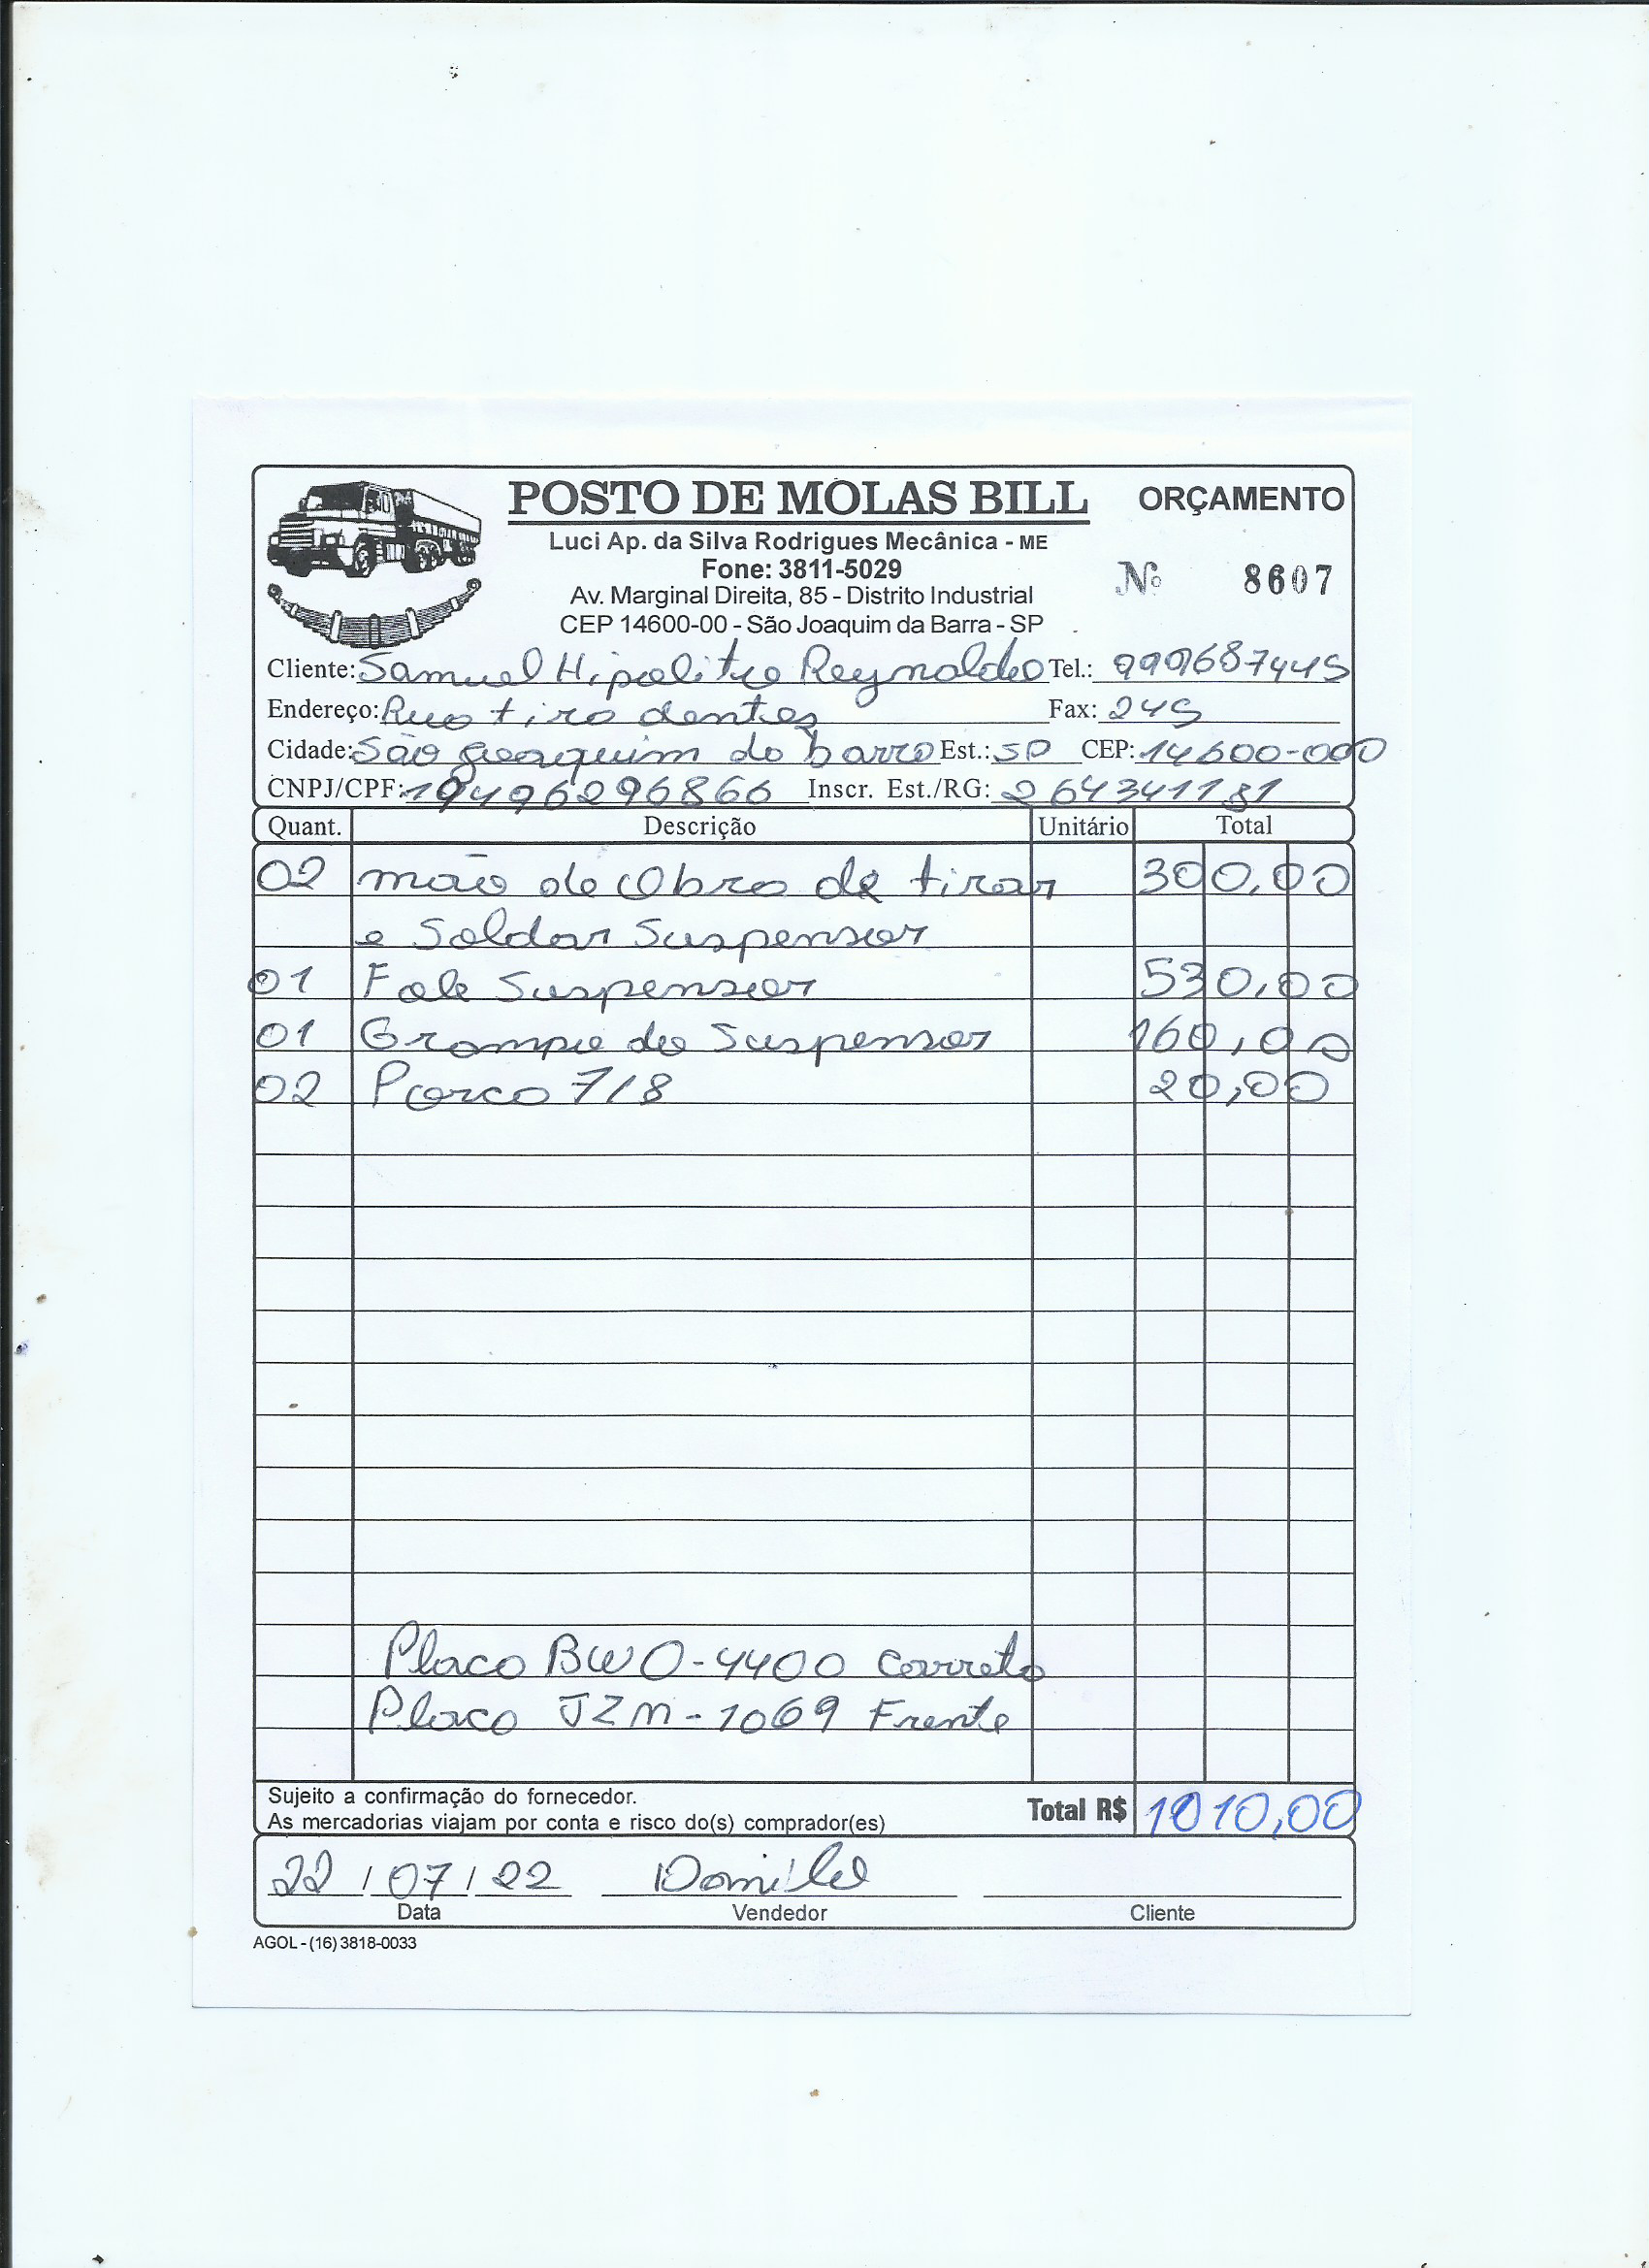 POSTO DE MOLAS BILL ORÇAMENTO
Luci Ap. da Silva Rodrigues Mecânica - ME
Fone: 3811-5029
Nº 8607
Av. Marginal Direita, 85 - Distrito Industrial
CEP 14600-00 - São Joaquim da Barra - SP
Cliente: Samuel Hipolito Reynaldo Tel.: 999687445
Endereço: Rua tira dentes Fax: 245
Cidade: São Joaquim da barra Est.: SP CEP: 14600-000
CNPJ/CPF: 19496296866 Inscr. Est./RG: 264341181
Quant. Descrição Unitário Total
02 mão de Obra de tirar 300,00
e Soldar Suspensor
01 Fole Suspensor 530,00
01 Grampo do Suspensor 160,00
02 Porca 7/8 20,00
Placa BWO-4400 Carreta
Placa JZM-1069 Frente
Sujeito a confirmação do fornecedor.
As mercadorias viajam por conta e risco do(s) comprador(es) Total R$ 1010,00
22/07/22 Danilo
Data Vendedor Cliente
AGOL - (16) 3818-0033